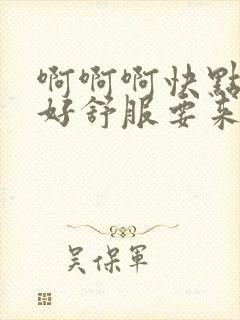 啊啊啊快點
好舒服要来
吴保軍